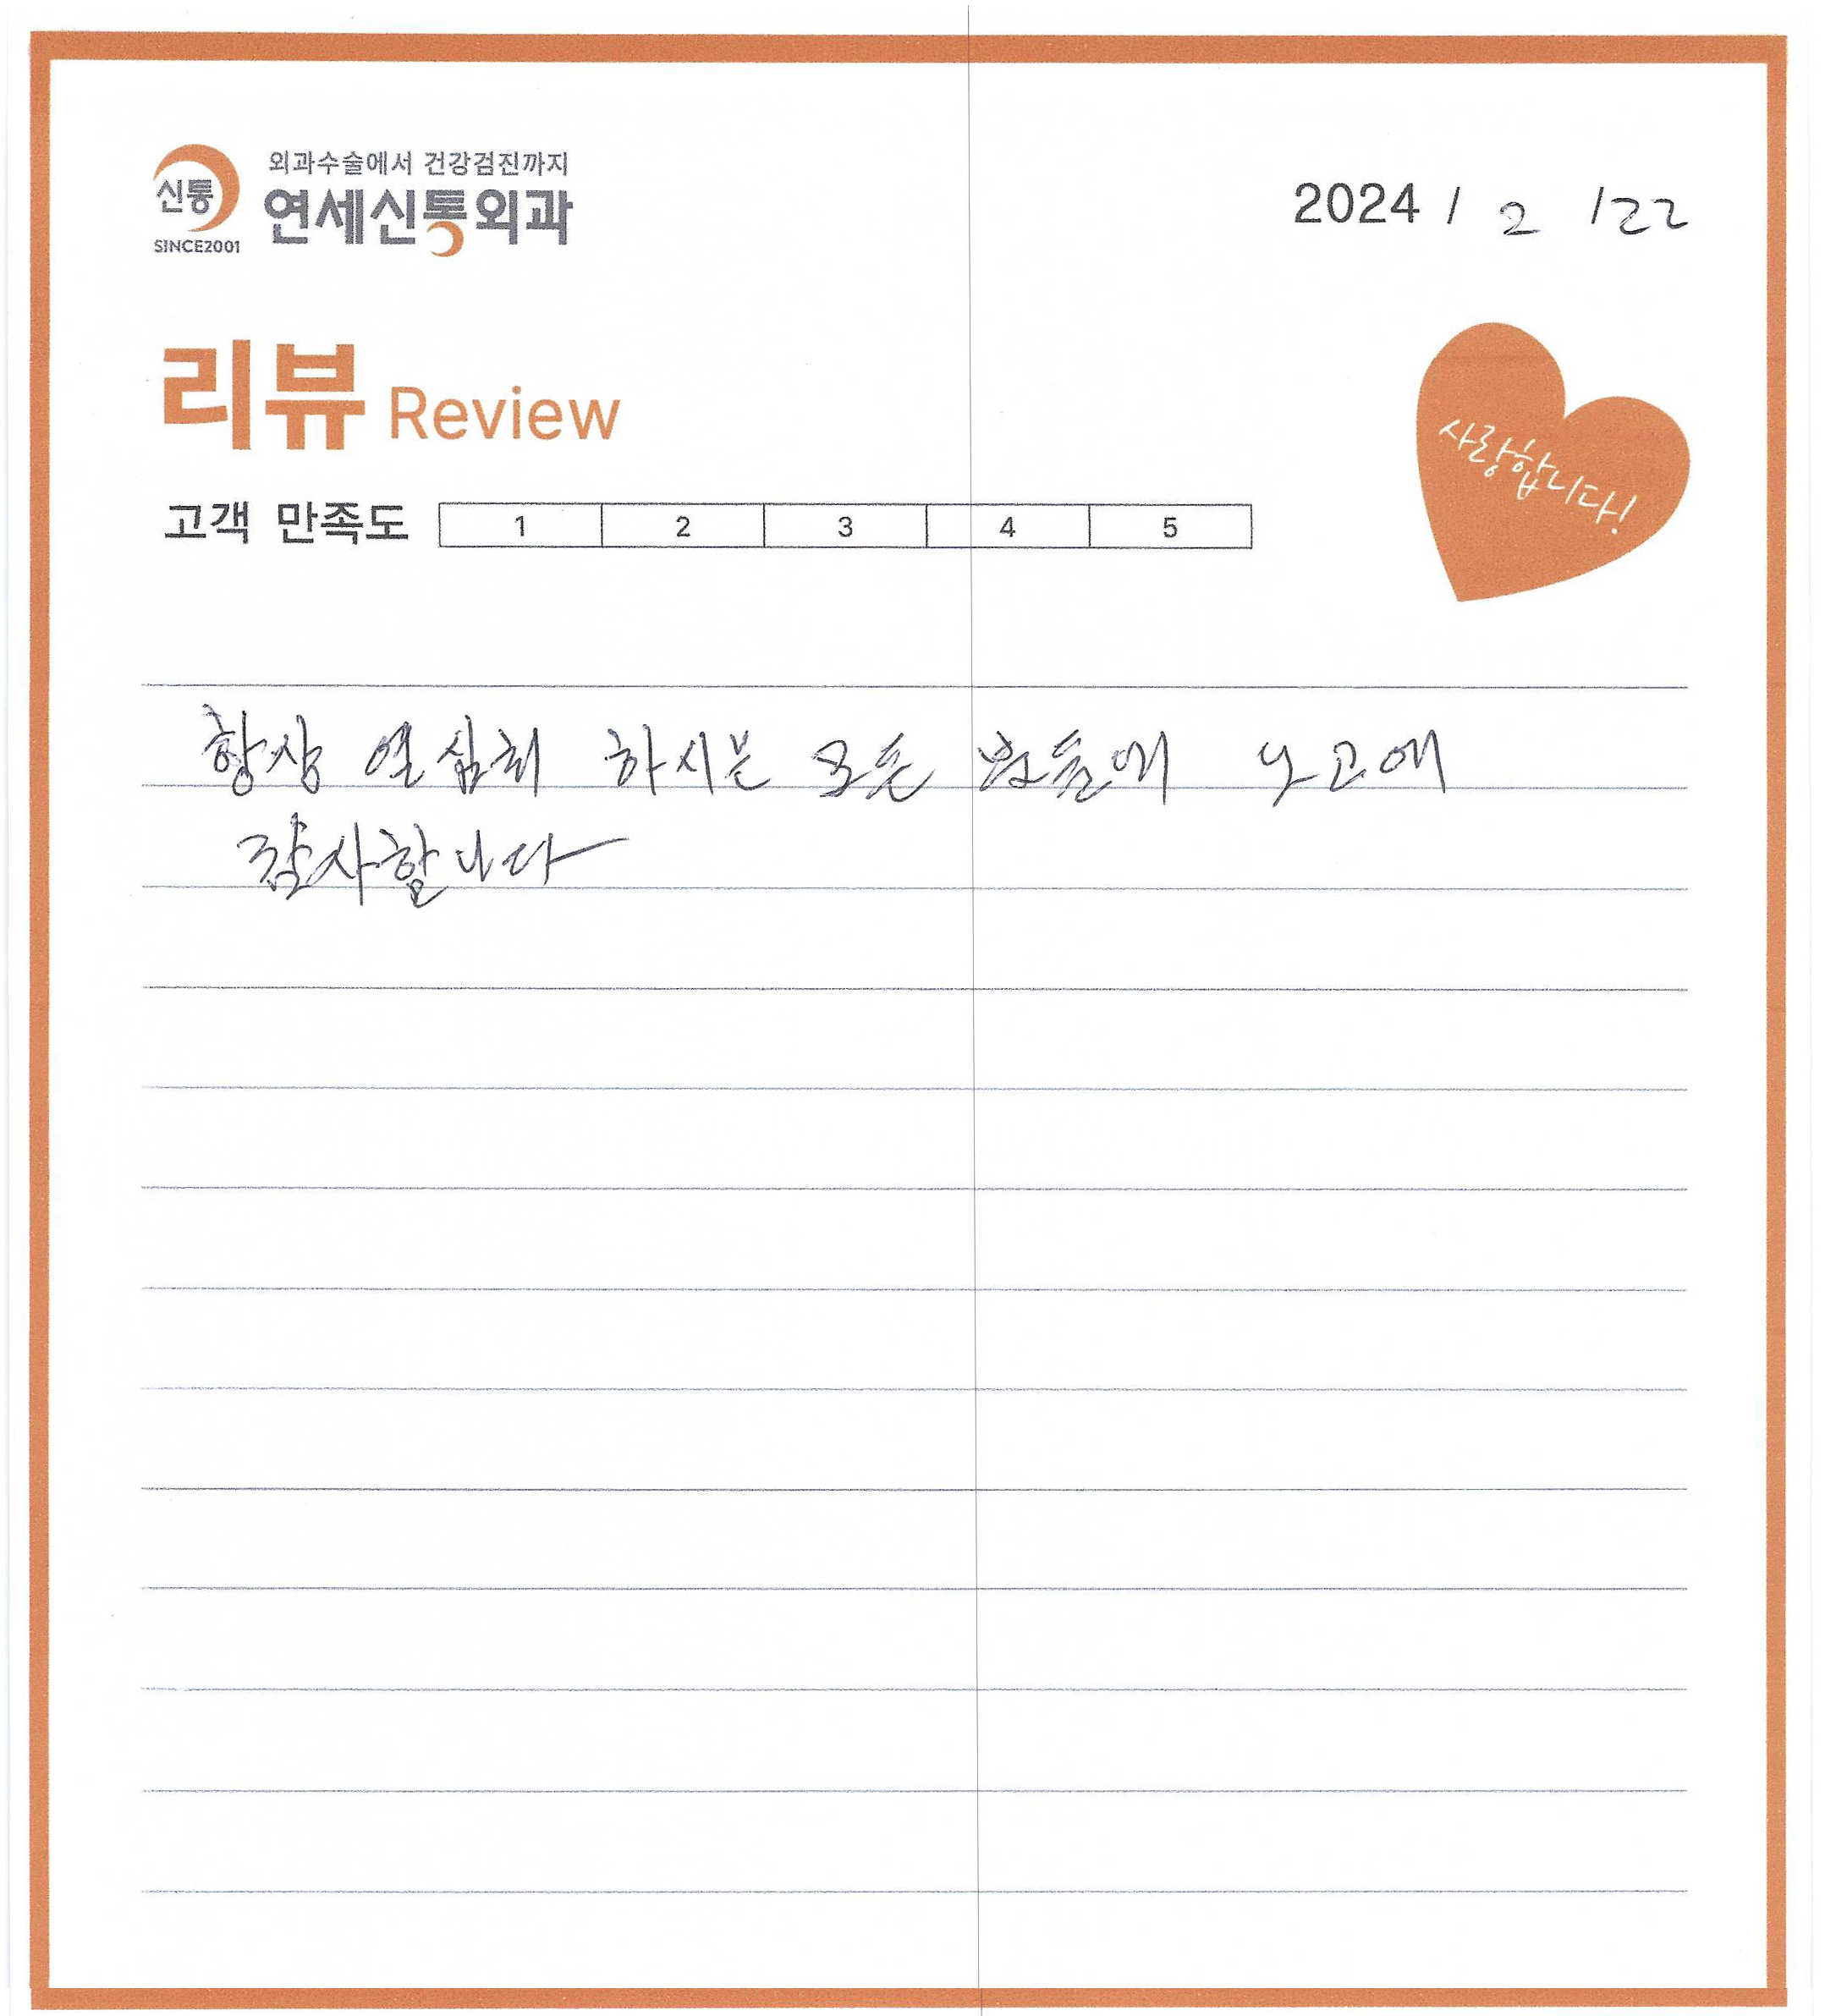 외과수술에서 건강검진까지
신통 연세신통외과
SINCE2001
2024 / 2 / 22
리뷰 Review
사랑합니다!
고객 만족도 1 2 3 4 5
항상 열심히 하시는 모든 분들에 노고에
감사합니다